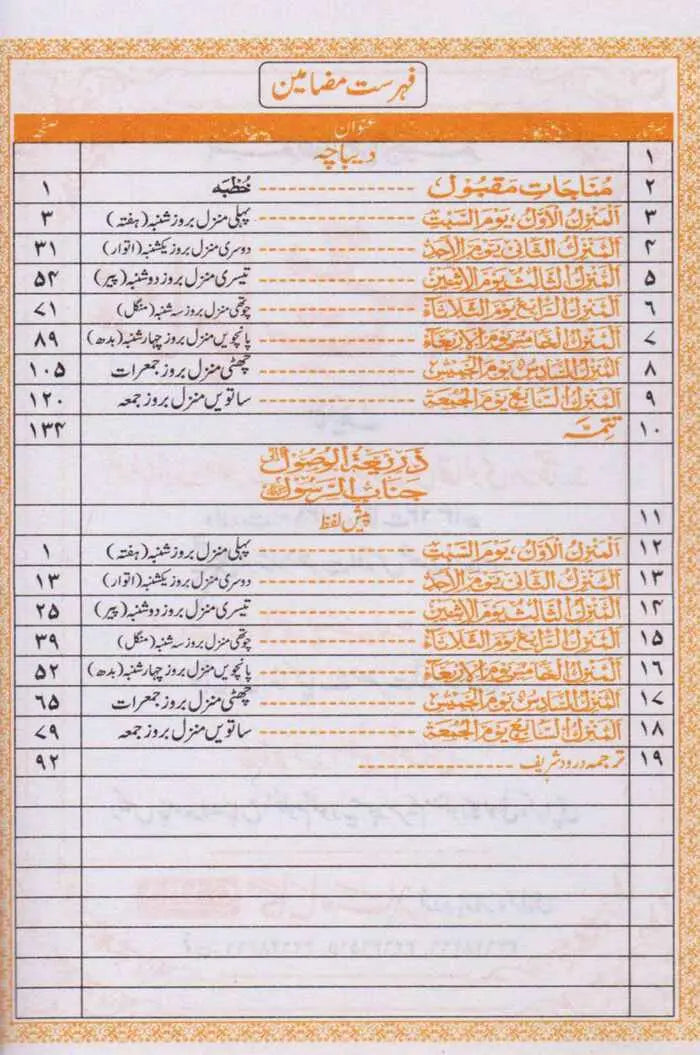 فہرست مضامین
عنوان
۱ دیباچہ
۲ مُنَاجَاتِ مَقبُول خُطبَہ ۱
۳ اَلمَنزِلُ الاَوَّلُ، یَومَ السَّبتِ پہلی منزل بروز شنبہ (ہفتہ) ۳
۴ اَلمَنزِلُ الثَّانِی یَومَ الاَحَدِ دوسری منزل بروز یکشنبہ (اتوار) ۳۱
۵ اَلمَنزِلُ الثَّالِثُ یَومَ الاِثنَینِ تیسری منزل بروز دوشنبہ (پیر) ۵۴
۶ اَلمَنزِلُ الرَّابِعُ یَومَ الثُّلَاثَآءِ چوتھی منزل بروز سہ شنبہ (منگل) ۷۱
۷ اَلمَنزِلُ الخَامِسُ یَومَ الاَربِعَآءِ پانچویں منزل بروز چہار شنبہ (بدھ) ۸۹
۸ اَلمَنزِلُ السَّادِسُ یَومَ الخَمِیسِ چھٹی منزل بروز جمعرات ۱۰۵
۹ اَلمَنزِلُ السَّابِعُ یَومَ الجُمُعَةِ ساتویں منزل بروز جمعہ ۱۲۰
۱۰ تتِمَّہ ۱۳۴
ذَرِیعَةُ الوُصُول اِلٰی
جَنَابِ الرَّسُول ﷺ
۱۱ پیش لفظ
۱۲ اَلمَنزِلُ الاَوَّلُ، یَومَ السَّبتِ پہلی منزل بروز شنبہ (ہفتہ) ۱
۱۳ اَلمَنزِلُ الثَّانِی یَومَ الاَحَدِ دوسری منزل بروز یکشنبہ (اتوار) ۱۳
۱۴ اَلمَنزِلُ الثَّالِثُ یَومَ الاِثنَینِ تیسری منزل بروز دوشنبہ (پیر) ۲۵
۱۵ اَلمَنزِلُ الرَّابِعُ یَومَ الثُّلَاثَآءِ چوتھی منزل بروز سہ شنبہ (منگل) ۳۹
۱۶ اَلمَنزِلُ الخَامِسُ یَومَ الاَربِعَآءِ پانچویں منزل بروز چہار شنبہ (بدھ) ۵۲
۱۷ اَلمَنزِلُ السَّادِسُ یَومَ الخَمِیسِ چھٹی منزل بروز جمعرات ۶۵
۱۸ اَلمَنزِلُ السَّابِعُ یَومَ الجُمُعَةِ ساتویں منزل بروز جمعہ ۷۹
۱۹ ترجمہ درود شریف ۹۲